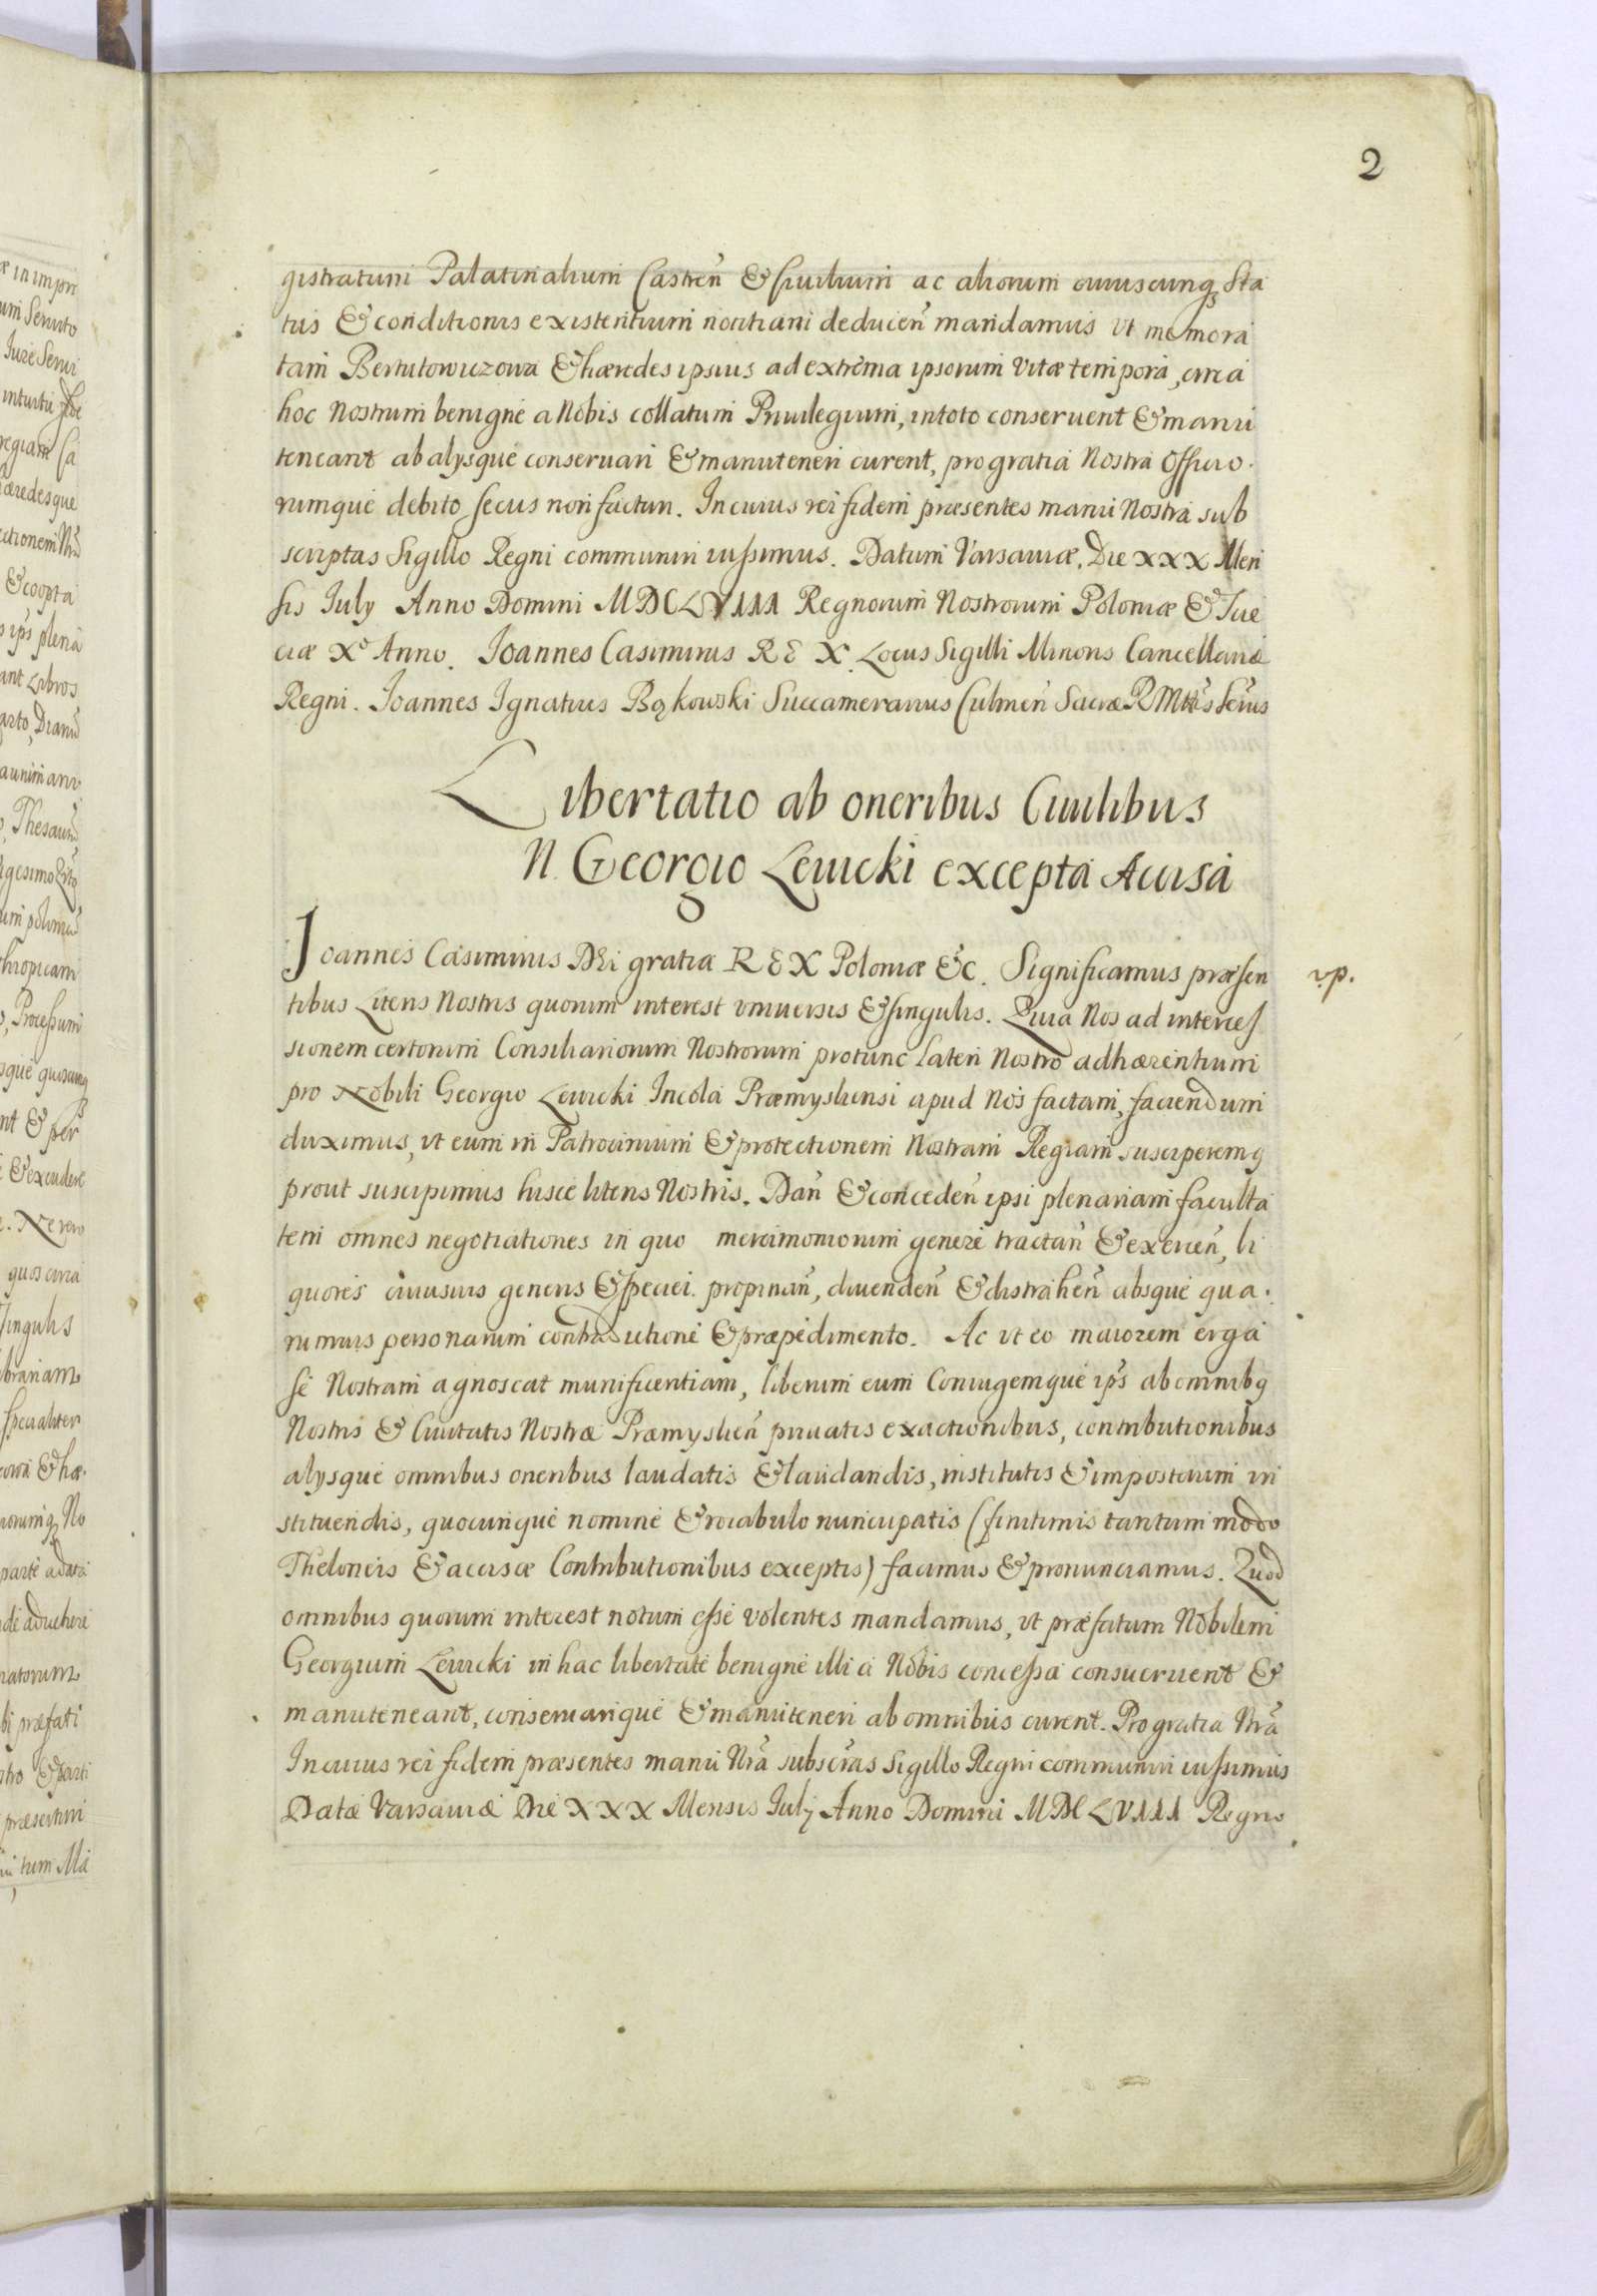 2
gistratum Palatinalium Castren̄ & Ciuilium ac aliorum cuiuscunq₃ Sta
tus & conditionis existentium notitiam deducen̄ mandamus vt memora
tam Bertutowiczowa & hæredes ipsius ad extrema ipsorum vitæ tempora, circa
hoc Nostrum benigne a Nobis collatum Priuilegium, in toto conseruent & manu
teneant ab alysque conseruari & manuteneri curent, pro gratia Nostra Officio.
rumque debito secus non factun. In cuius rei fidem præsentes manu Nostra sub
scriptas Sigillo Regni communiri iussimus. Datum Varsauiæ. Die XXX Men
sis July Anno Domini MDCLVIII Regnorum Nostrorum Poloniæ & Sue
ciæ Xo Anno. Joannes Casimirus REX. Locus Sigilli Minoris Cancellariæ
Regni. Joannes Ignatius Bąkowski Succamerarius Culmen̄ Sacræ R Mttis Sērius
Libertatio ab oneribus Ciuilibus
N. Georgio Lewicki excepta Acisa
Joannes Casimirus DEi gratia REX Poloniæ &c. Significamus præsen
v.p.
tibus Literis Nostris quorum interest vniuersis & singulis. Quia Nos ad interces
sionem certorum Consiliariorum Nostrorum protunc lateri Nostro adhærentium
pro Nobili Georgio Lewicki Incola Præmysliensi apud Nos factam, faciendum
duximus, vt eum in Patrocinium & protectionem Nostram Regiam susciperemq
prout suscipimus hisce literis Nostris. Dan̄ & conceden̄ ipsi plenariam faculta
tem omnes negotiationes in quo mercimoniorum genere tractan̄ & exercen̄, li
quores cuiusuis generis & speciei propinan̄, diuenden̄ & distrahen̄ absque qua.
rumuis personarum contradictione & præpedimento. Ac vt eo maiorem erga
se Nostram agnoscat munificentiam, liberum eum Coniugemque ips̄ ab omnibq
Nostris & Ciuitatis Nostræ Præmyslien̄ priuatis exactionibus, contributionibus
alysque omnibus oneribus laudatis & laudandis, institutis & imposterum in
stituendis, quocunque nomine & vocabulo nuncupatis (finitimis tantum modo
Theloneis & acisæ Contributionibus exceptis) facimus & pronunciamus. Quod
omnibus quorum interest notum esse volentes mandamus, vt præfatum Nobilem
Georgium Lewicki in hac libertate benigne illi a Nobis concessa consueruent &
manuteneant, conseruarique & manuteneri ab omnibus curent. Pro gratia Nr̄a
In cuius rei fidem præsentes manu Nr̄a subscr̄as Sigillo Regni communiri iussimus
Datæ Varsauiæ Die XXX Mensis July Anno Domini MDCLVIII Regno